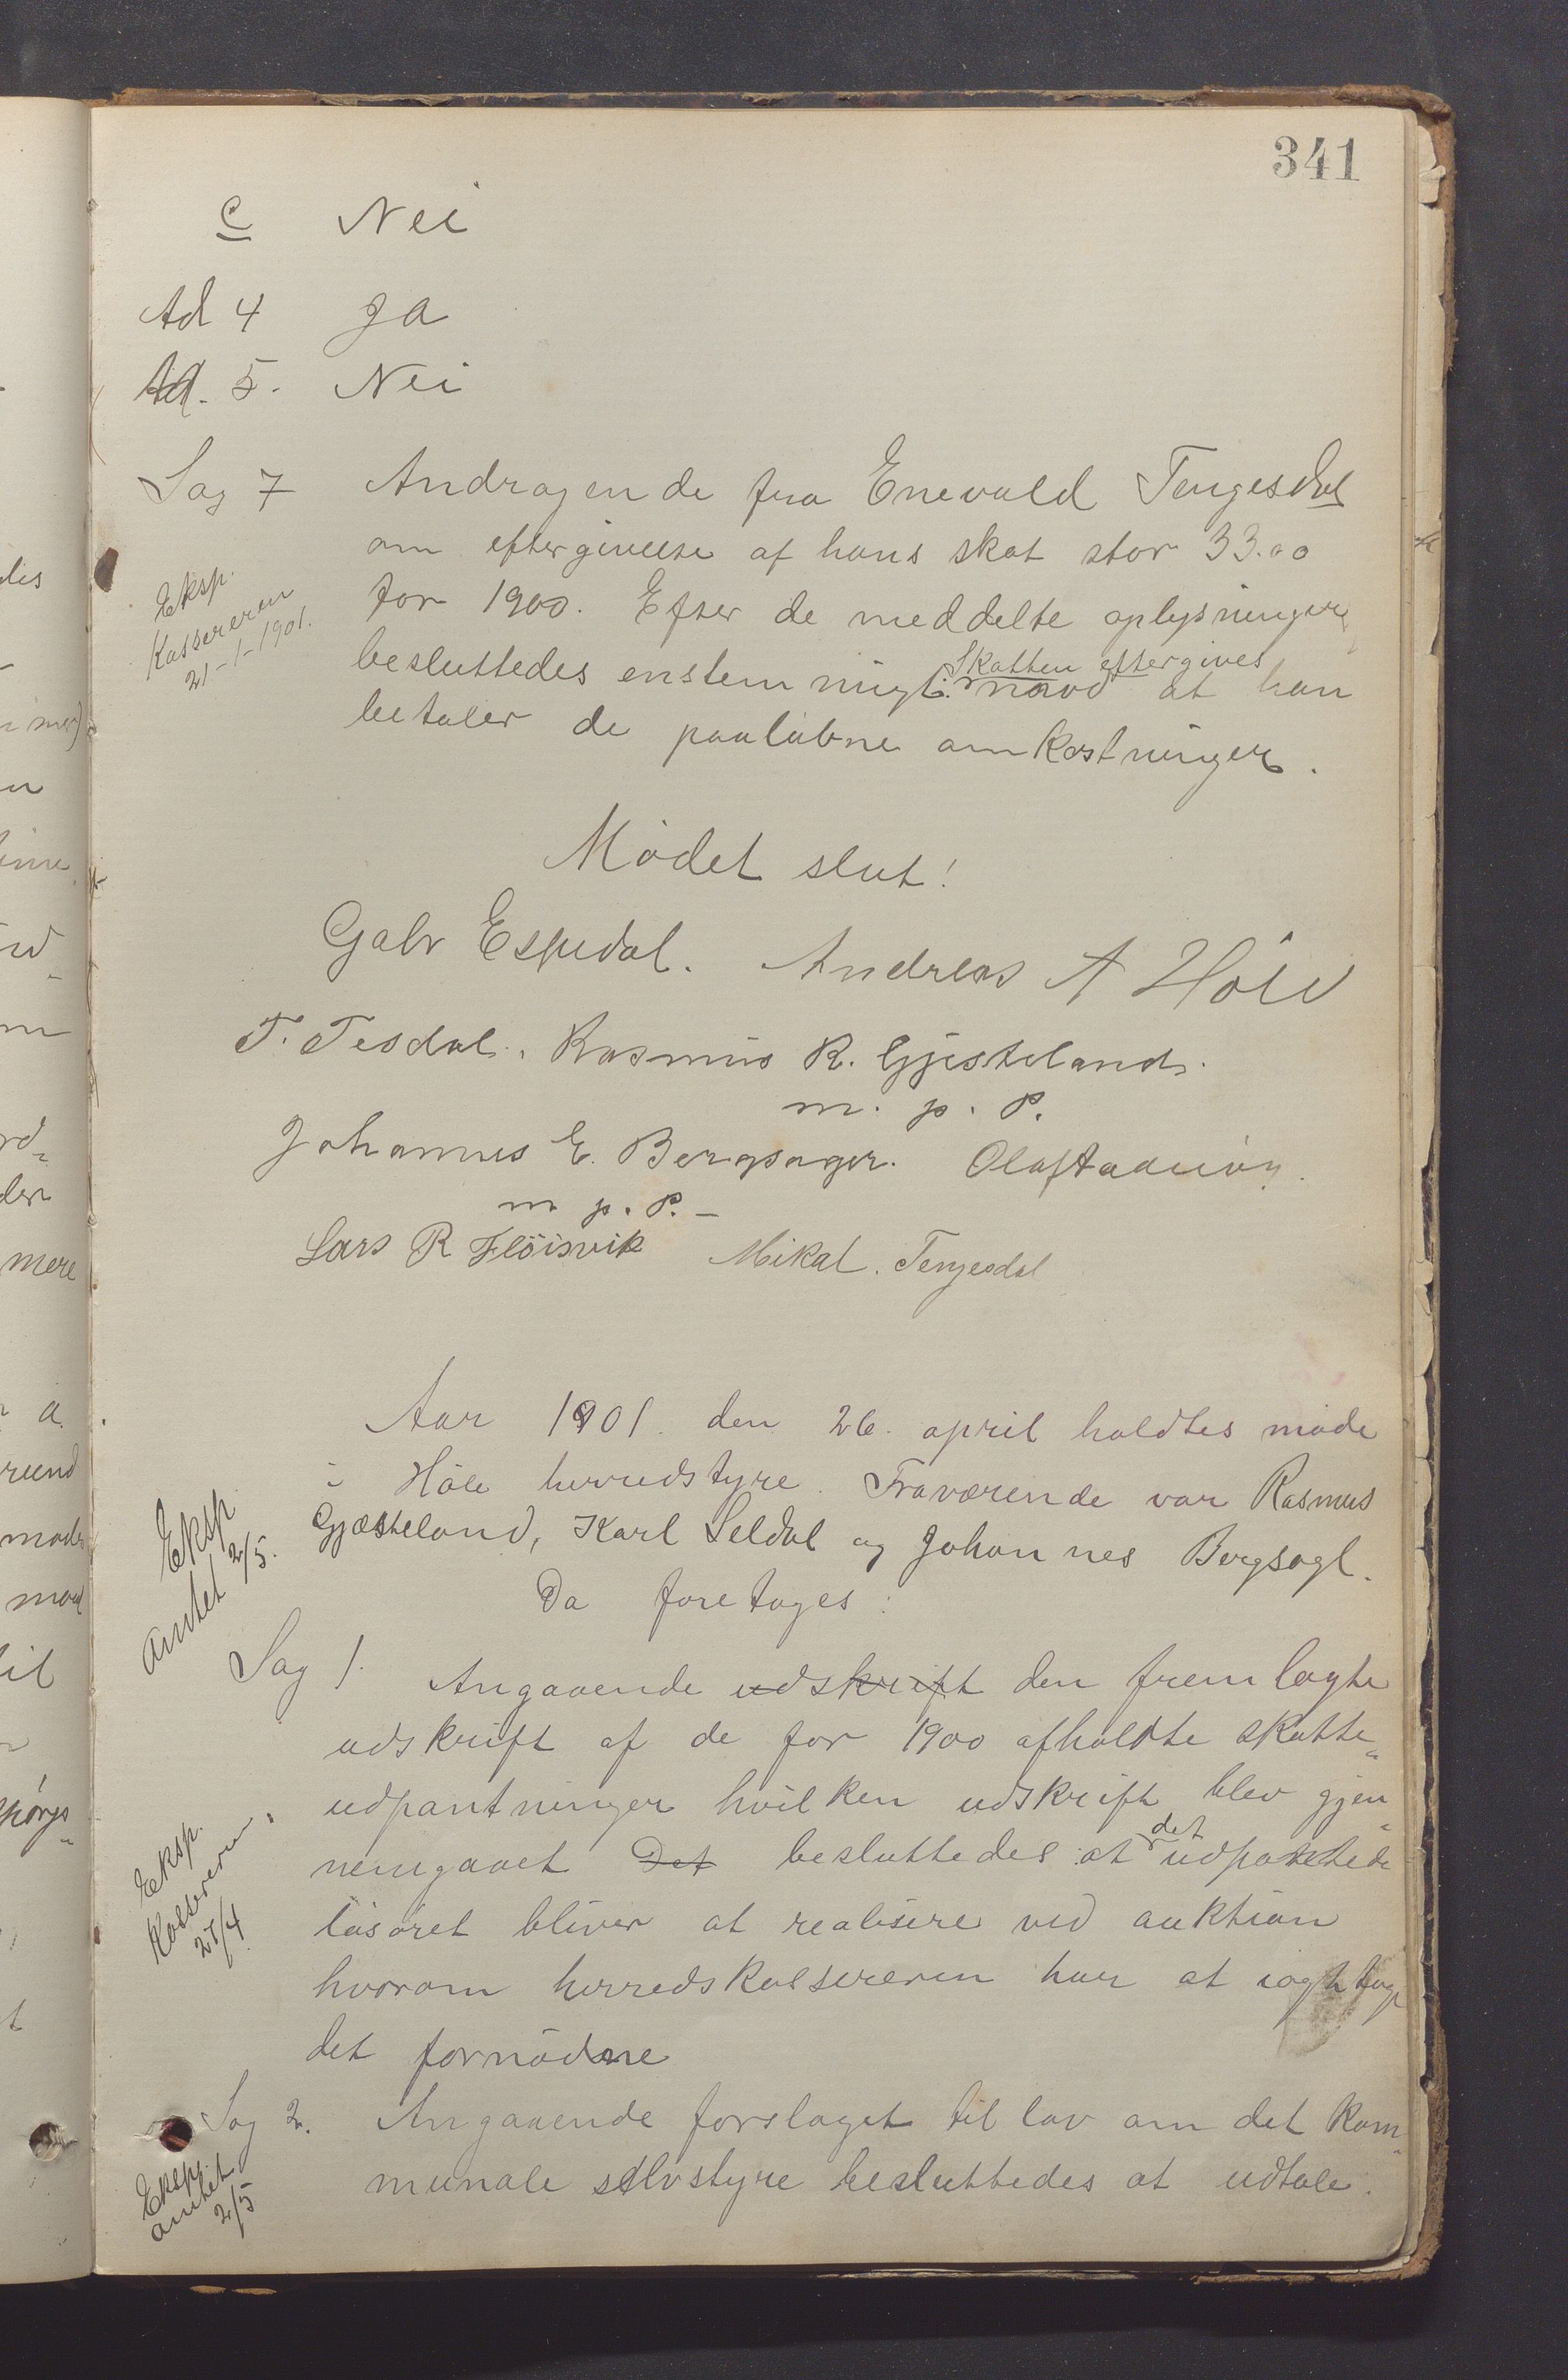 341
c Nei
Ad 4 Ja
Ad. 5. Nei
Sag 7 Andragende fra Enevald Tengesdal
om eftergivelse af hans skat stor 33.00
Eksp.
Kassereren
21-1-1901.
for 1900. Efter de meddelte oplysninger
besluttedes enstemmigt: Skatten eftergives mod at han
betaler de paaløbne omkostninger.
Mødet slut!
Gabr Espedal. Andreas A Høle
T. Tesdal. Rasmus R. Gjesteland.
m. p. P.
Johannes E. Bergsager. Olaf
m. p. P. –
Lars R Fløisvik Mikal. Tengesdal
Aar 1901. den 26. april holdtes møde
i Høle herredstyre. Fraværende var Rasmus
Gjesteland, Karl Seldal og Johannes Bergsagl.
Eksp
amtet 2/5.
Da foretoges:
Sag 1. Angaaende udskrift den fremlagte
udskrift af de for 1900 afholdte skatte„
udpantninger hvilken udskrift blev gjen„
nemgaaet Det besluttedes: at det udpantede
Eksp.
Kassereren
27/4
løsøret bliver at realisere ved auktion
hvorom herredskassereren har at iagttage
det fornødne
Sag 2. Angaaende forslaget til lov om det kom„
munale selvstyre besluttedes at udtale.
Eksp.
amtet
2/5